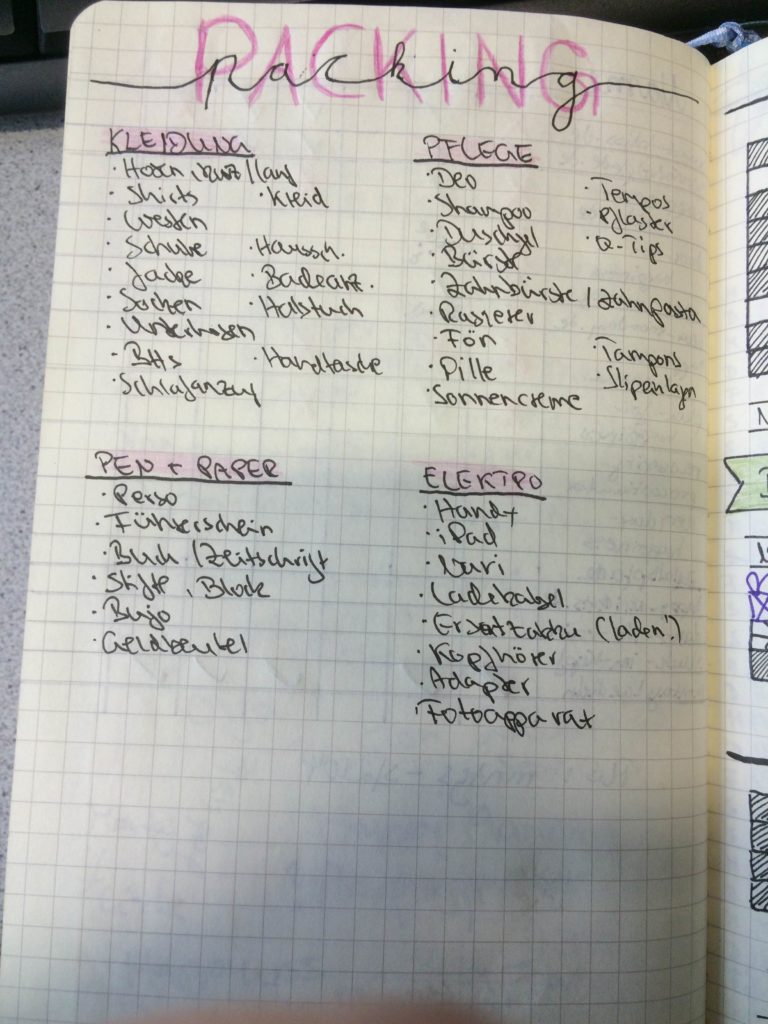 PACKING
Packing
KLEIDUNG
· Hosen kurz/lang
· Shirts
· Kleid
· Westen
· Schuhe
· Haussch.
· Jacke
· Badeanz.
· Socken
· Halstuch
· Unterhosen
· BHs
· Handtasche
· Schlafanzug
PFLEGE
· Deo
· Shampoo
· Tempos
· Duschgel
· Pflaster
· Bürste
· Q-Tips
· Zahnbürste / Zahnpasta
· Rasierer
· Fön
· Tampons
· Pille
· Slipeinlagen
· Sonnencreme
PEN + PAPER
· Perso
· Führerschein
· Buch / Zeitschrift
· Stifte, Block
· Bujo
· Geldbeutel
ELEKTRO
· Handy
· iPad
· Navi
· Ladekabel
· Ersatzakku (laden!)
· Kopfhörer
· Adapter
· Fotoapparat